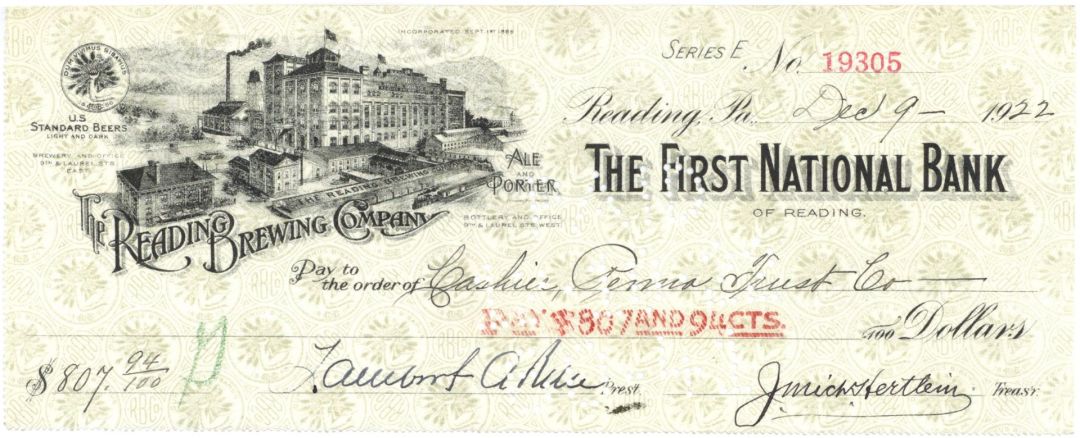 INCORPORATED SEPT. 1ST 1886
SERIES E. No. 19305
U.S
STANDARD BEERS
LIGHT AND DARK
BREWERY AND OFFICE
9TH & LAUREL STS
EAST
Reading, Pa. Dec 19 - 1922
THE FIRST NATIONAL BANK
OF READING.
ALE
AND
PORTER
THE READING BREWING CO.
BOTTLERY AND OFFICE
9TH & LAUREL STS. WEST
The READING BREWING COMPANY
Pay to
the order of Cashier, Penna Trust Co
PAY $807 AND 94 CTS.
/100 Dollars
$ 807. 94/100
Prest.
J Mich Hertlein Treasr.